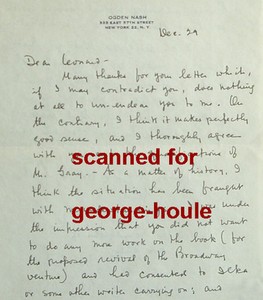 OGDEN NASH
333 EAST 57TH STREET
NEW YORK 22, N.Y.
Dec. 29
Dear Leonard -
Many thanks for your letter which,
if I may contradict you, does nothing
at all to un-endear you to me. On
the contrary, I think it makes perfectly
good sense, and I thoroughly agree
with
of Mr. Gray. - As a matter of history, I
think the situation has been fraught
with
under
the impression that you did not want
to do any more work on the book (for
the proposed revival of the Broadway
venture) and had consented to
or some other writer carrying on; and
scanned for
george-houle